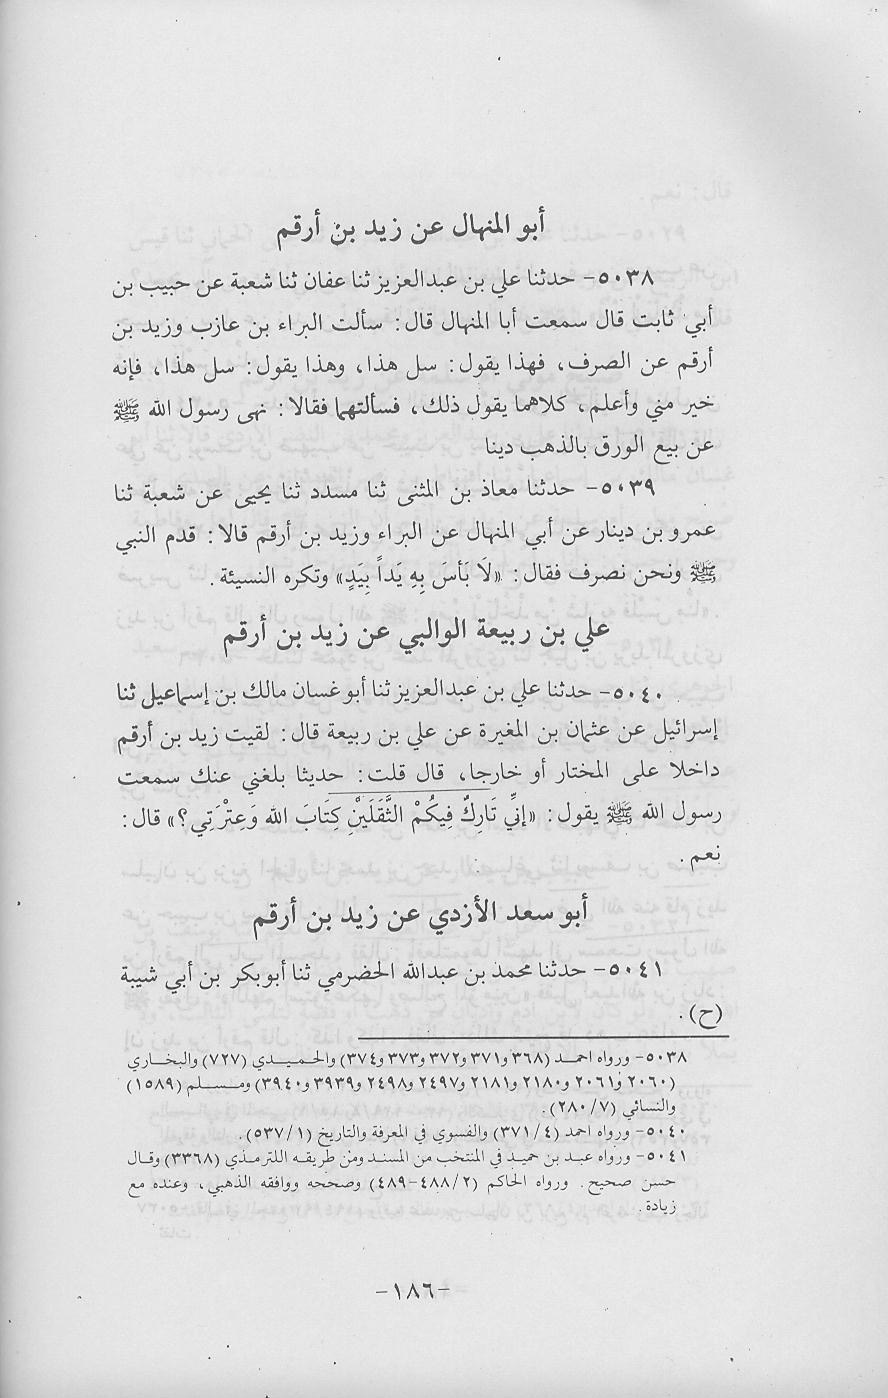 أبو المنهال عن زيد بن أرقم
٥٠٣٨- حدثنا علي بن عبدالعزيز ثنا عفان ثنا شعبة عن حبيب بن
أبي ثابت قال سمعت أبا المنهال قال: سألت البراء بن عازب وزيد بن
أرقم عن الصرف، فهذا يقول: سل هذا، وهذا يقول: سل هذا، فإنه
خير مني وأعلم، كلاهما يقول ذلك، فسألتهما فقالا: نهى رسول الله ﷺ
عن بيع الورق بالذهب دينا
٥٠٣٩- حدثنا معاذ بن المثنى ثنا مسدد ثنا يحيى عن شعبة ثنا
عمرو بن دينار عن أبي المنهال عن البراء وزيد بن أرقم قالا: قدم النبي
ﷺ ونحن نصرف فقال: «لَا بَأسَ بِهِ يَداً بِيَدٍ» وتكره النسيئة.
علي بن ربيعة الوالبي عن زيد بن أرقم
٥٠٤٠- حدثنا علي بن عبدالعزيز ثنا أبو غسان مالك بن إسماعيل ثنا
إسرائيل عن عثمان بن المغيرة عن علي بن ربيعة قال: لقيت زيد بن أرقم
داخلا على المختار أو خارجا، قال قلت: حديثا بلغني عنك سمعت
رسول الله ﷺ يقول: «إنِّي تَارِكٌ فِيكُمْ الثَّقَلَيْنِ كِتَابَ الله وَعِتْرَتِي؟» قال:
نعم.
أبو سعد الأزدي عن زيد بن أرقم
٥٠٤١- حدثنا محمد بن عبدالله الحضرمي ثنا أبوبكر بن أبي شيبة
(ح).
٥٠٣٨- ورواه احمد (٣٦٨ و٣٧١ و٣٧٢ و٣٧٣ و٣٧٤) والحميدي (٧٢٧) والبخاري
(٢٠٦٠ و٢٠٦١ و٢١٨٠ و٢١٨١ و٢٤٩٧ و٢٤٩٨ و٣٩٣٩ و٣٩٤٠) ومسلم (١٥٨٩)
والنسائي (٧/ ٢٨٠).
٥٠٤٠- ورواه احمد (٤/ ٣٧١) والفسوي في المعرفة والتاريخ (١/ ٥٣٧).
٥٠٤١- ورواه عبد بن حميد في المنتخب من المسند ومن طريقه الترمذي (٣٣٦٨) وقال
حسن صحيح. ورواه الحاكم (٢/ ٤٨٨-٤٨٩) وصححه ووافقه الذهبي، وعنده مع
زيادة.
-١٨٦-